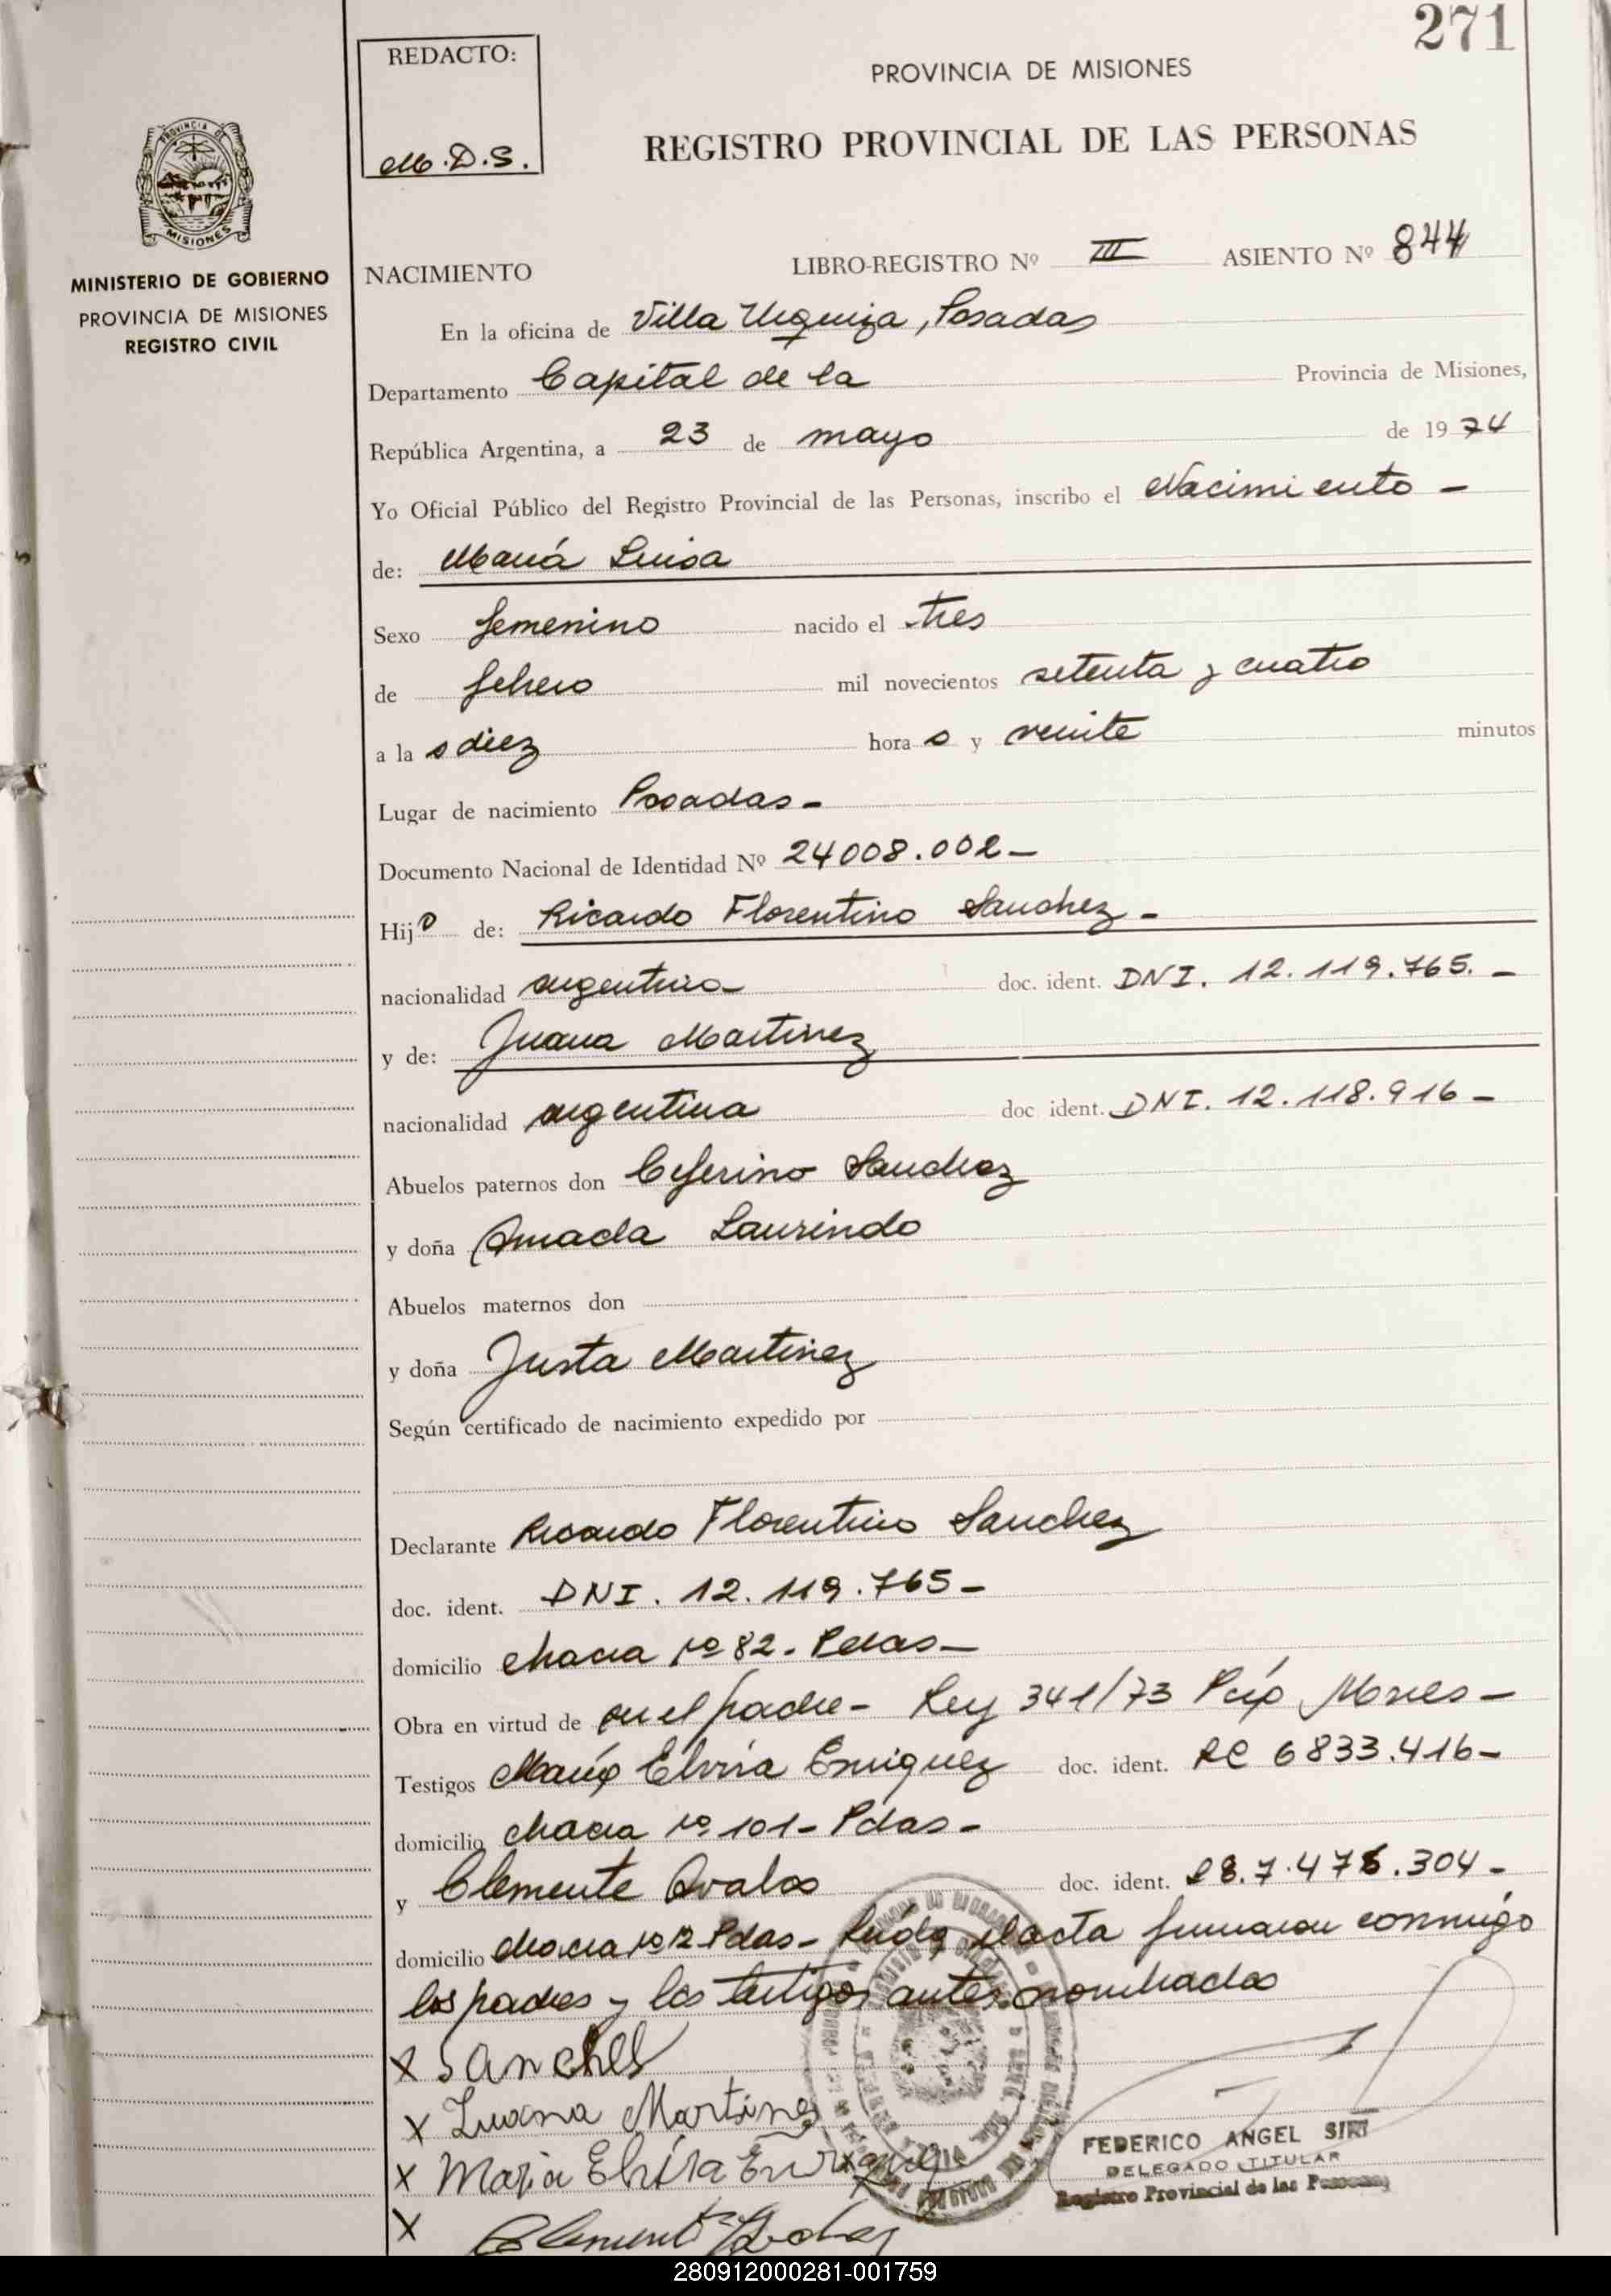 271
REDACTO:
M.D.S.
PROVINCIA DE MISIONES
REGISTRO PROVINCIAL DE LAS PERSONAS
PROVINCIA DE
MISIONES
MINISTERIO DE GOBIERNO
PROVINCIA DE MISIONES
REGISTRO CIVIL
NACIMIENTO LIBRO-REGISTRO Nº III ASIENTO Nº 844
En la oficina de Villa Urquiza, Posadas
Departamento Capital de la Provincia de Misiones,
República Argentina, a 23 de mayo de 1974
Yo Oficial Público del Registro Provincial de las Personas, inscribo el Nacimiento -
de: María Luisa
Sexo femenino nacido el tres
de febrero mil novecientos setenta y cuatro
a las diez horas y veinte minutos
Lugar de nacimiento Posadas -
Documento Nacional de Identidad Nº 24008.002 -
Hijo de: Ricardo Florentino Sanchez -
nacionalidad argentina doc. ident. DNI. 12.119.765. -
y de: Juana Martinez
nacionalidad argentina doc ident. DNI. 12.118.916 -
Abuelos paternos don Ceferino Sanchez
y doña Amada Laurindo
Abuelos maternos don
y doña Justa Martinez
Según certificado de nacimiento expedido por
Declarante Ricardo Florentino Sanchez
doc. ident. DNI. 12.119.765 -
domicilio chacra nº 82 - Pdas -
Obra en virtud de ser el padre - Ley 341/73 Misiones -
Testigos María Elvira Enriquez doc. ident. LC 6833.416 -
domicilio chacra nº 101 - Pdas -
y Clemente Avalos doc. ident. 7.475.304 -
domicilio chacra nº Pdas - Leída el acta firmaron conmigo
los padres y los testigos antes nombrados
X Sanchez
X Juana Martinez
X Maria Elvira Enriquez
X Clemente Avalos
FEDERICO ANGEL SIRI
DELEGADO TITULAR
Registro Provincial de las Personas
280912000281-001759